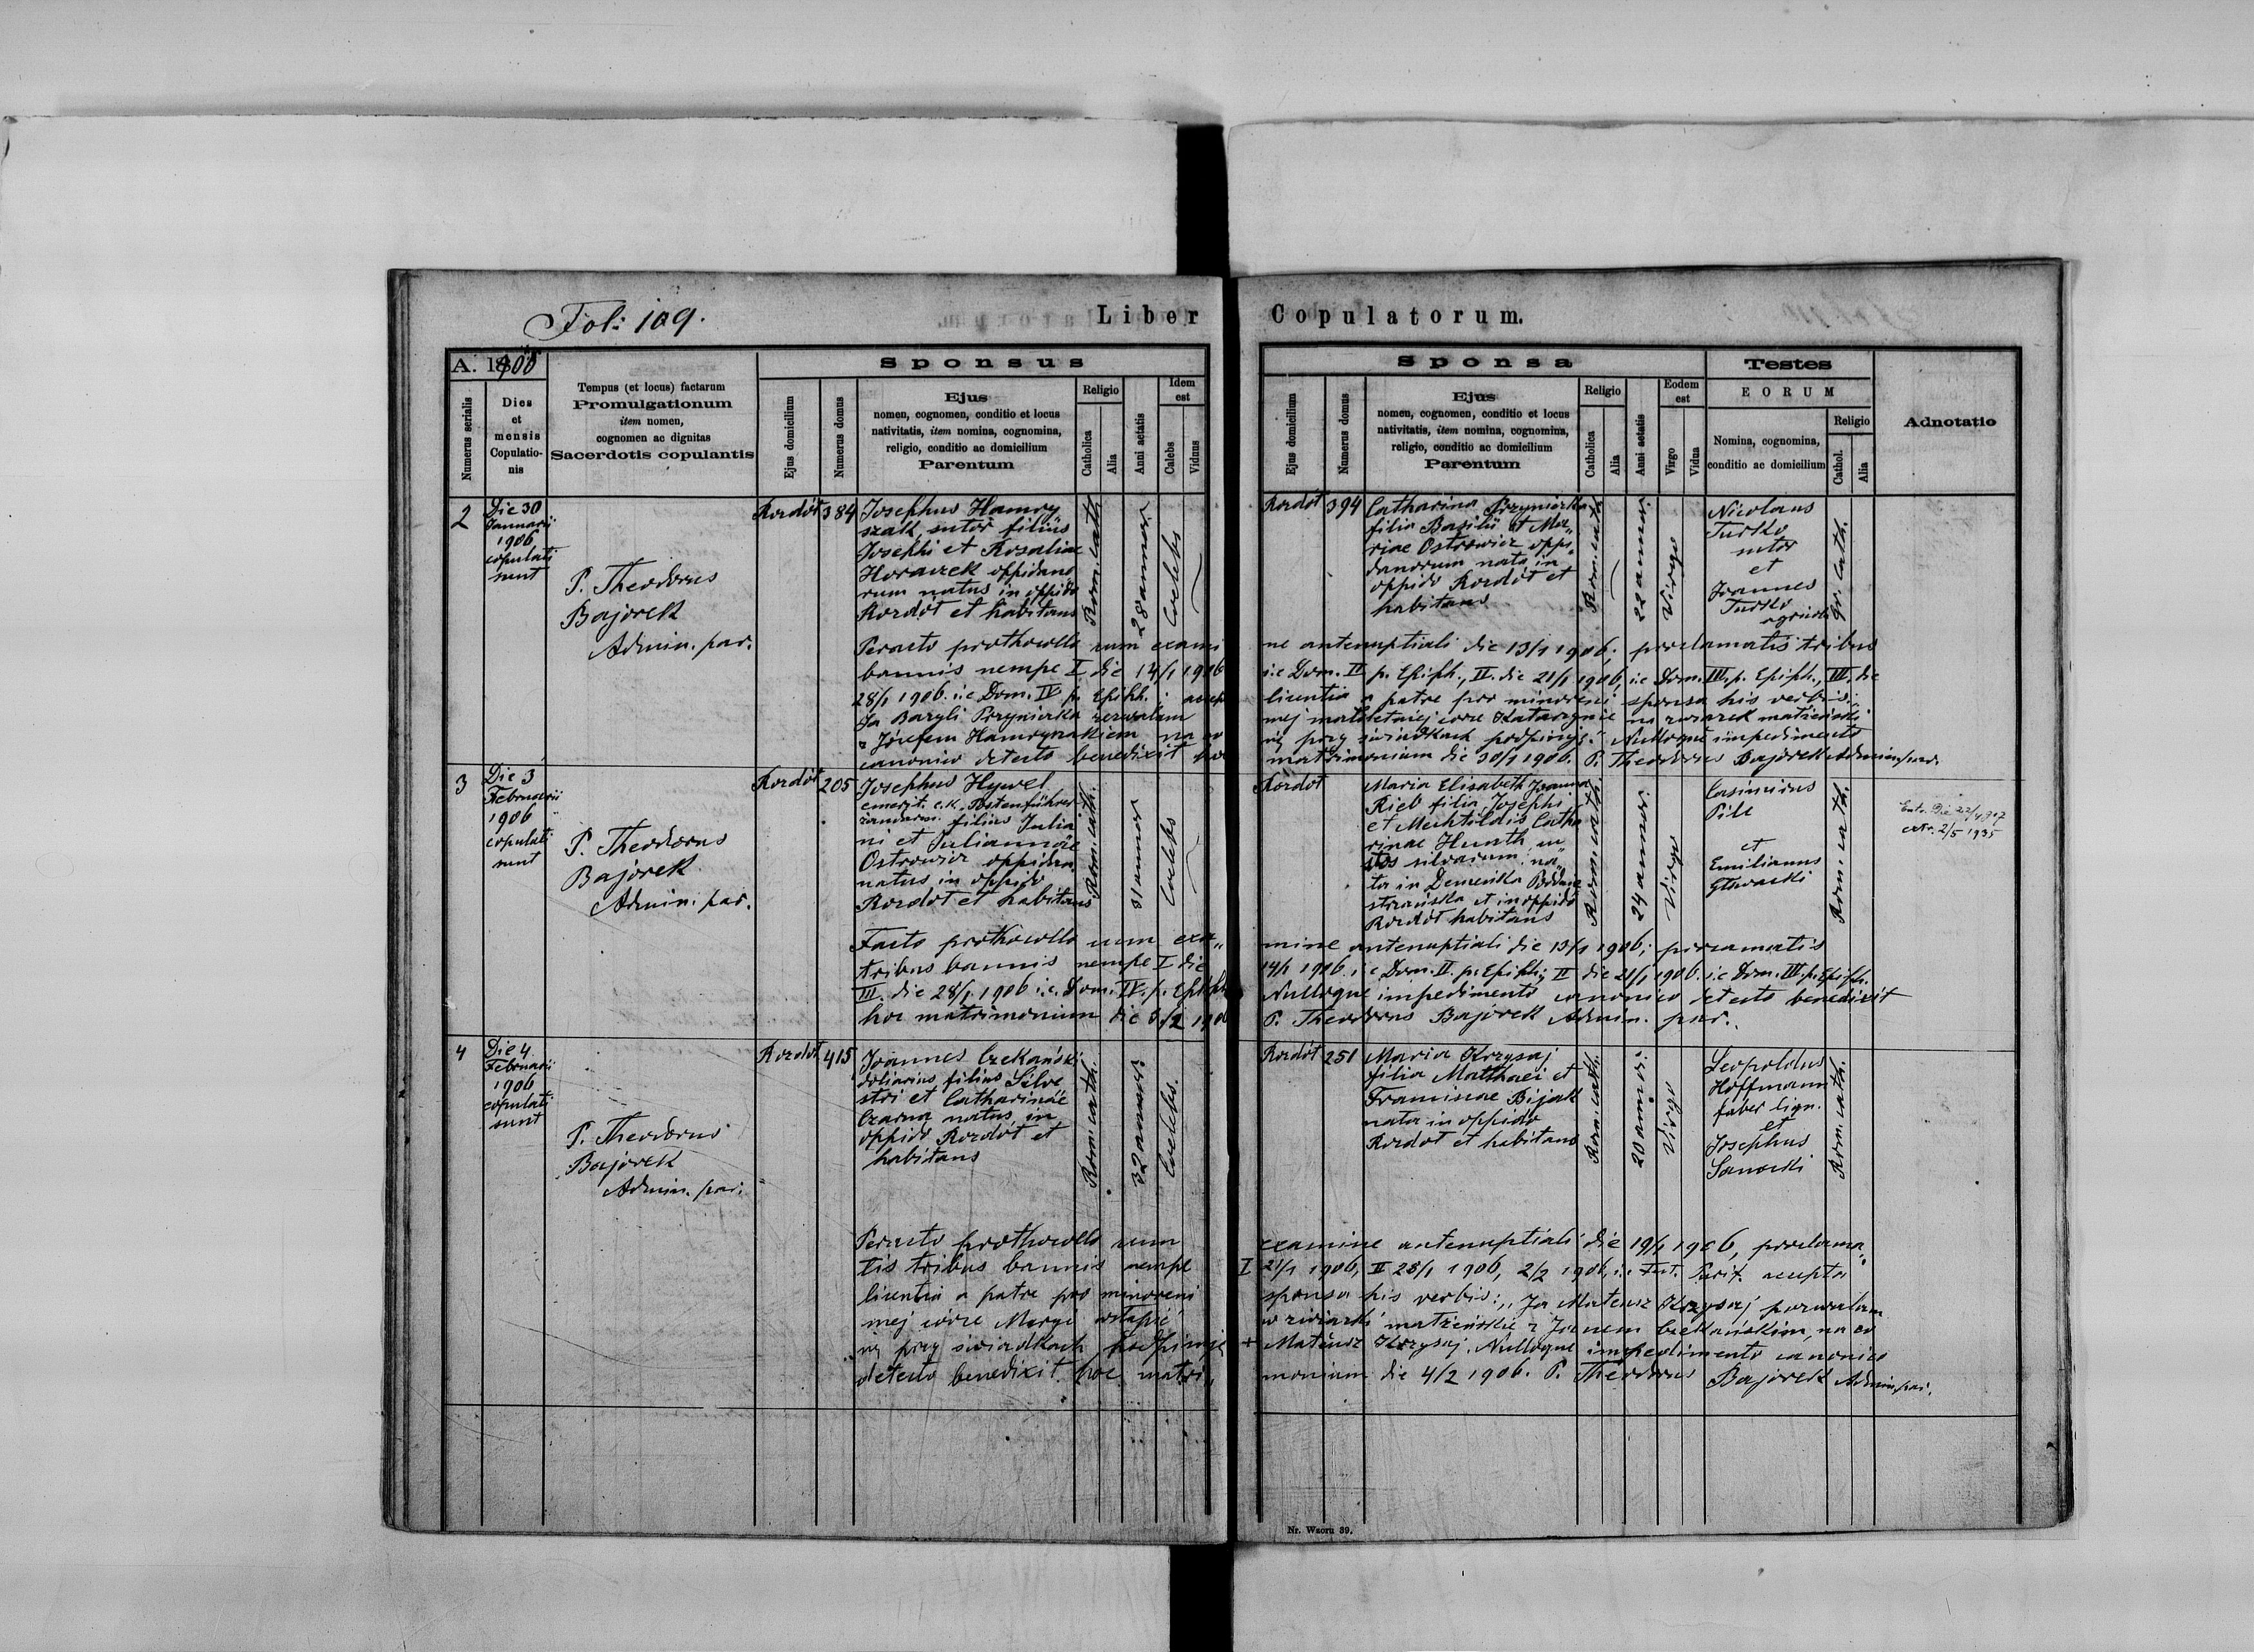 Fol: 109.
Liber Copulatorum.
A. 1906
Numerus serialis
Dies
et
mensis
Copulatio-
nis
Tempus (et locus) factarum
Promulgationum
item nomen,
cognomen ac dignitas
Sacerdotis copulantis
Sponsus
Ejus domicilium
Numerus domus
Ejus
nomen, cognomen, conditio et locus
nativitatis, item nomina, cognomina,
religio, conditio ac domicilium
Parentum
Religio
Catholica
Alia
Anni aetatis
Idem
est
Calebs
Viduus
Sponsa
Ejus domicilium
Numerus domus
Ejus
nomen, cognomen, conditio et locus
nativitatis, item nomina, cognomina,
religio, conditio ac domicilium
Parentum
Religio
Catholica
Alia
Anni aetatis
Eodem
est
Virgo
Vidua
Testes
EORUM
Nomina, cognomina,
conditio ac domicilium
Religio
Cathol.
Alia
Adnotatio
2
Die 30
Januarii
1906
copulati
sunt
P. Theodorus
Bajorek
Admin. par.
Kozdót
384
Josephus Hamry
szak, sutor filius
Josephi et Rosaliae
Horaczek oppidano
rum natus in oppido
Kozdót et habitans
Rom. cath.
28 annor.
Coelebs
Kozdót
394
Catharina Przymierka
filia Basilii et Ma„
riae Ostrowicz oppi„
danorum nata in
oppido Kozdót et
habitans
Rom. cath.
22 annor.
Virgo
Nicolaus
Turko
sutor
et
Joannes
Turko
agricola
gr. cath.
Peracto prothocollo cum exami ne antenuptiali die 13/1 1906; proclamatis tribus
bannis nempe I die 14/1 1906 i.e Dom. II p. Epiph., II. die 21/1 1906, i.e Dom. III. p. Epiph., III. die
28/1 1906. i.e Dom. IV p. Epiph. accep licentia a patre pro minoreni sponsa his verbis:
Ja Bazyli Przymierka zezwalam mej małoletniej córce Katarzynie na związek małżeński
z Józefem Hamryszakiem na co się przy świadkach podpisuję." Nulloque impedimento
canonico detecto benedixit hoc matrimonium die 30/1 1906. P. Theodorus Bajorek Admin. par.
3
Die 3
Februarii
1906
copulati
sunt
P. Theodorus
Bajorek
Admin. par.
Kozdót
205
Josephus Hywel
emerit. c.k. Postenführer
żandarm. filius Julia
ni et Juliannae
Ostrowicz oppidan.
natus in oppido
Kozdót et habitans
Rom. cath.
31 annor
Coelebs
Kozdót
Maria Elisabeth Joanna
Rieb filia Josephi
et Mechtildis Catha
rinae Hurth, cu
stos silvarum, na„
ta in Demenka Poddnie
strzańska et in oppido
Kozdót habitans
Rom. cath.
24 annor.
Virgo
Casimirus
Pile
et
Emilianus
Głowacki
Rom. cath.
extr. 2/5 1935
Facto prothocollo cum exa„ mine antenuptiali die 13/1 1906; procamatis
tribus bannis nempe I die 14/1 1906. i.e Dom. II. p. Epiph; II die 21/1 1906. i.e Dom. III. p. Epiph.
III. die 28/1 1906 i.e. Dom. IV. p. Epiph. Nulloque impedimento canonico detecto benedixit
hoc matrimonium die 3/2 1906 P. Theodorus Bajorek Admin. par.
4
Die 4
Februarii
1906
copulati
sunt
P. Theodorus
Bajorek
Admin. par.
Kozdót
415
Joannes Czekański
doliarius filius Silve
stri et Catharinae
Czarna natus in
oppido Kozdót et
habitans
Rom. cath.
32 annor.
Coelebs.
Kozdót
251
Maria Krzysaj
filia Matthaei et
Franciscae Bijak
nata in oppido
Kozdót et habitans
Rom. cath.
20 annor.
Virgo
Leopoldus
Hoffmann
faber lign.
et
Josephus
Sanocki
Rom. cath.
Peracto prothocollo cum examine antenuptiali die 19/1 1906, proclama„
tis tribus bannis nempe I 21/1 1906, II 28/1 1906, 2/2 1906, i.e Fest. Purif. accepta
licentia a patre pro minoreni sponsa his verbis: „Ja Mateusz Krzysaj pozwalam
mej córce Maryi wstąpić w związki małżeńskie z Janem Czekańskim, na co
się przy świadkach podpisuję + Mateusz Krzysaj. Nulloque impedimento canonico
detecto benedixit hoc matri„ monium die 4/2 1906. P. Theodorus Bajorek Admin. par.
Nr. Wzoru 39.